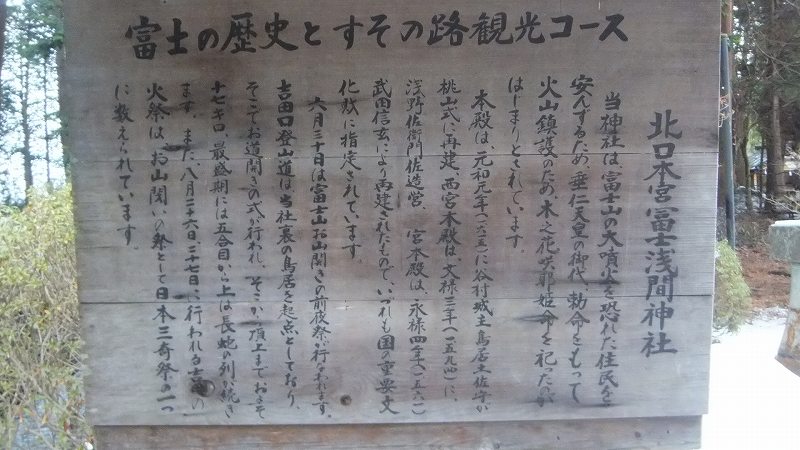 富士の歴史とすその路観光コース
北口本宮冨士浅間神社
当神社は、富士山の大噴火を恐れた住民を
安んずるため、垂仁天皇の御代、勅命をもって
火山鎮護のため木之花咲耶姫命を祀ったのが
はじまりとされています。
本殿は、元和元年(一六一五)に谷村城主鳥居土佐守が
桃山式に再建、西宮本殿は文禄三年(一五九四)に、
浅野左衛門佐造営、 宮本殿は、永禄四年(一五六一)
武田信玄により再建されたもので、いづれも国の重要文
化財に指定されています。
六月三十日は富士山お山開きの前夜祭が行なわれます。
吉田口登山道は当社裏の鳥居を起点としており、
そこでお道開きの式が行われ、そこから頂上までおよそ
十七キロ、最盛期には五合目から上は長蛇の列が続き
ます。また、八月二十六日、二十七日に行われる吉田の
火祭は、お山閉いの祭として日本三奇祭の一つ
に数えられています。